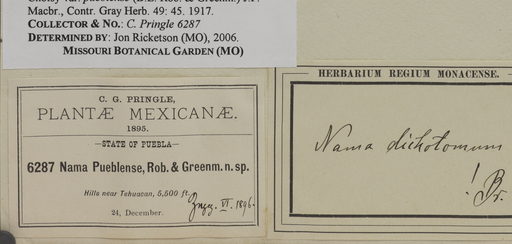 Macbr., Contr. Gray Herb. 49: 45. 1917.
COLLECTOR & NO.: C. Pringle 6287
DETERMINED BY: Jon Ricketson (MO), 2006.
MISSOURI BOTANICAL GARDEN (MO)
C. G. PRINGLE,
PLANTÆ MEXICANÆ.
1895.
—STATE OF PUEBLA—
6287 Nama Pueblense, Rob. & Greenm. n. sp.
Hills near Tehuacan, 5,500 ft.
24, December.
VI. 1896.
HERBARIUM REGIUM MONACENSE.
Nama dichotomum
!